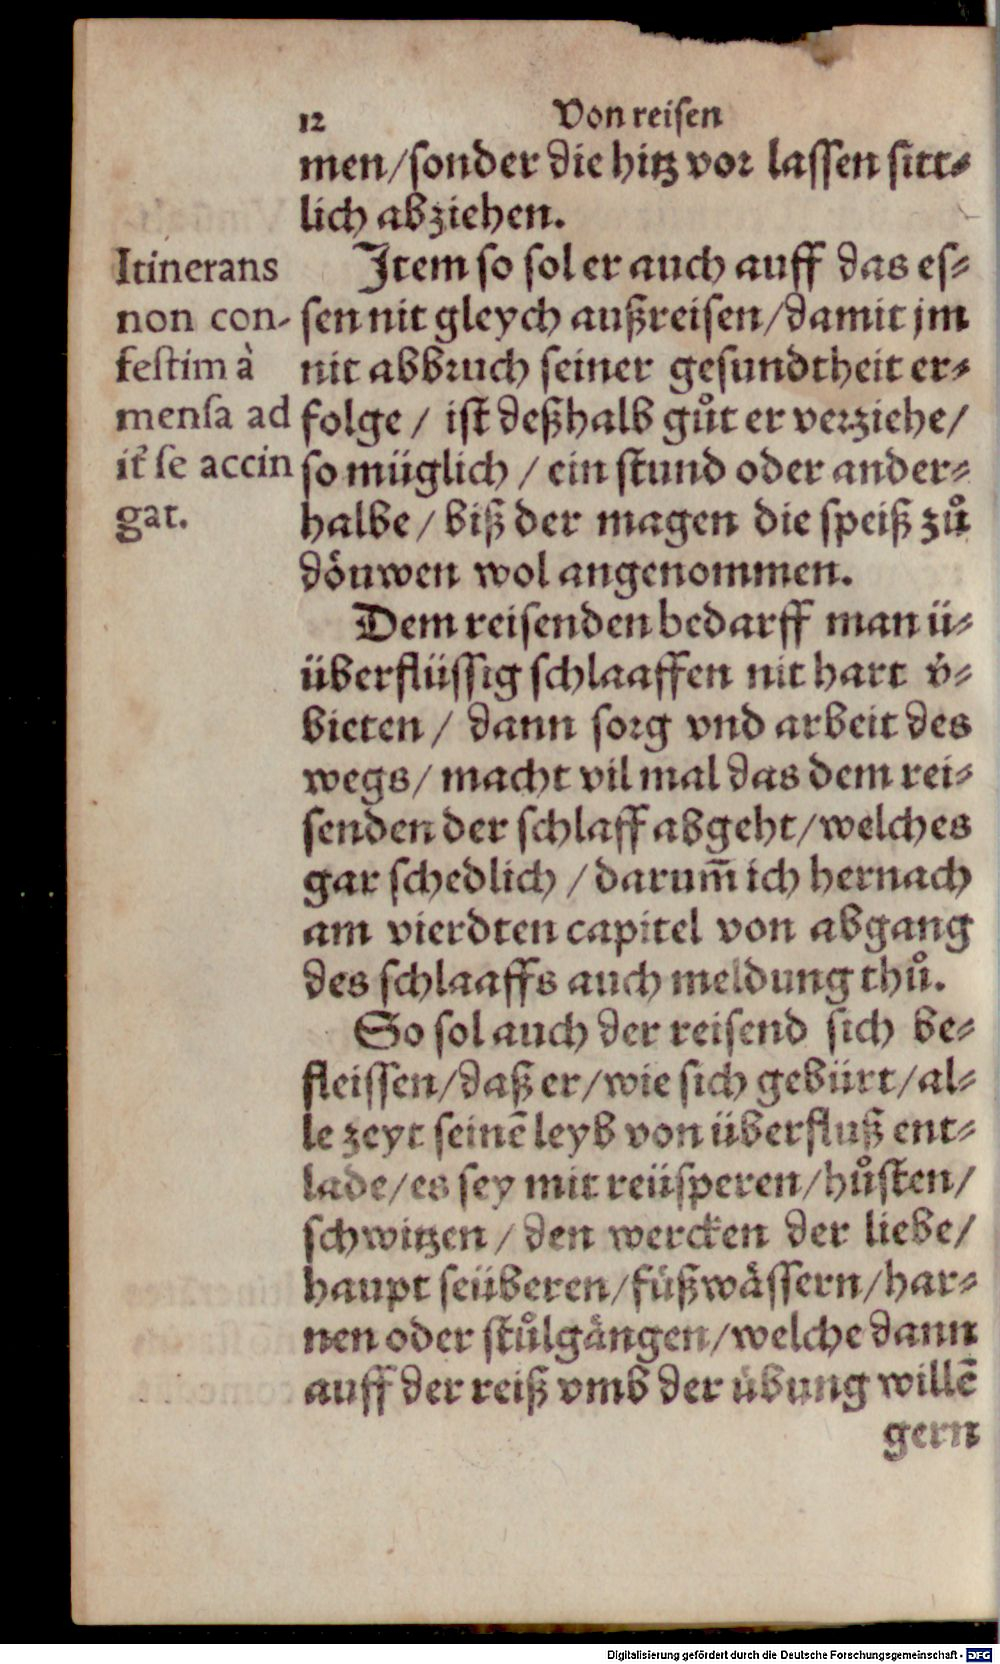 12 Von reisen
men/sonder die hitz vor lassen sitt⸗
lich abziehen.
Itinerans
non con-
festim à
mensa ad
itẽ se accin
gat.
Item so sol er auch auff das es⸗
sen nit gleych außreisen/damit jm
nit abbruch seiner gesundtheit er⸗
folge / ist deßhalb gůt er verziehe/
so müglich / ein stund oder ander⸗
halbe / biß der magen die speiß zů
döuwen wol angenommen.
Dem reisenden bedarff man ü⸗
überflüssig schlaaffen nit hart v̓⸗
bieten / dann sorg vnd arbeit des
wegs / macht vil mal das dem rei⸗
senden der schlaff abgeht/welches
gar schedlich / darum̃ ich hernach
am vierdten capitel von abgang
des schlaaffs auch meldung thů.
So sol auch der reisend sich be⸗
fleissen/daß er/wie sich gebürt/al⸗
le zeyt seinē leyb von überfluß ent⸗
lade/es sey mit reüsperen/hůsten/
schwitzen / den wercken der liebe/
haupt seüberen/füßwässern/har⸗
nen oder stůlgängen/welche dann
auff der reiß vmb der übung willē
gern
Digitalisierung gefördert durch die Deutsche Forschungsgemeinschaft - DFG